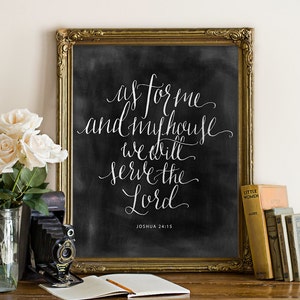 as for me
and my house
we will
serve the
Lord
JOSHUA 24:15
LITTLE
WOMEN